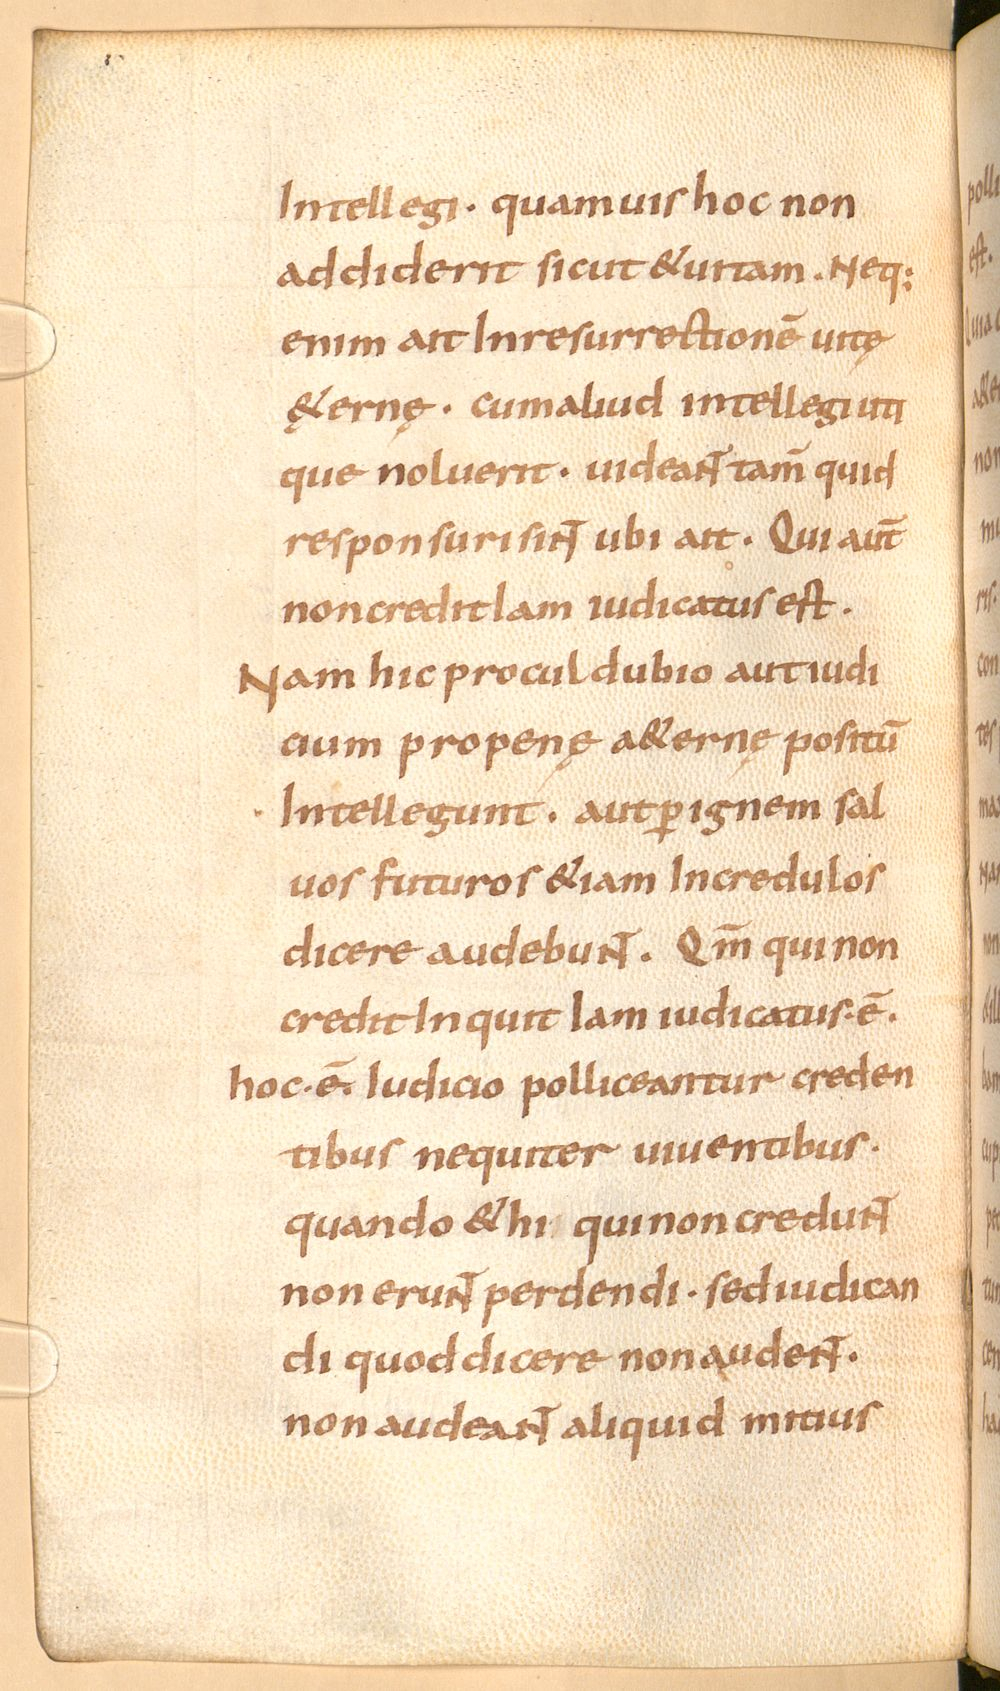 Intellegi · quamuis hoc non
addiderit sicut &uitam . Neq;
enim ait Inresurrectionē uitę
&ernę · cumaliud intellegi uti
que noluerit · uideaNT̄ tam̄ quid
responsuri siNT̄ ubi ait · Qui aut̄
noncredit Iam iudicatus est ·
Nam hic procul dubio aut iudi
cium propenę a&ernę positū
Intellegunt · aut ꝑignem sal
uos futuros &iam Incredulos
dicere audebuNT · Qm̄ qui non
credit Inquit Iam iudicatus·ē·
hoc·ē· Iudicio polliceantur creden
tibus nequiter uiuentibus·
quando &hi quinon creduNT
non eruNT perdendi · sediudican
di quod dicere non audeNT ·
non audeaNT aliquid mitius